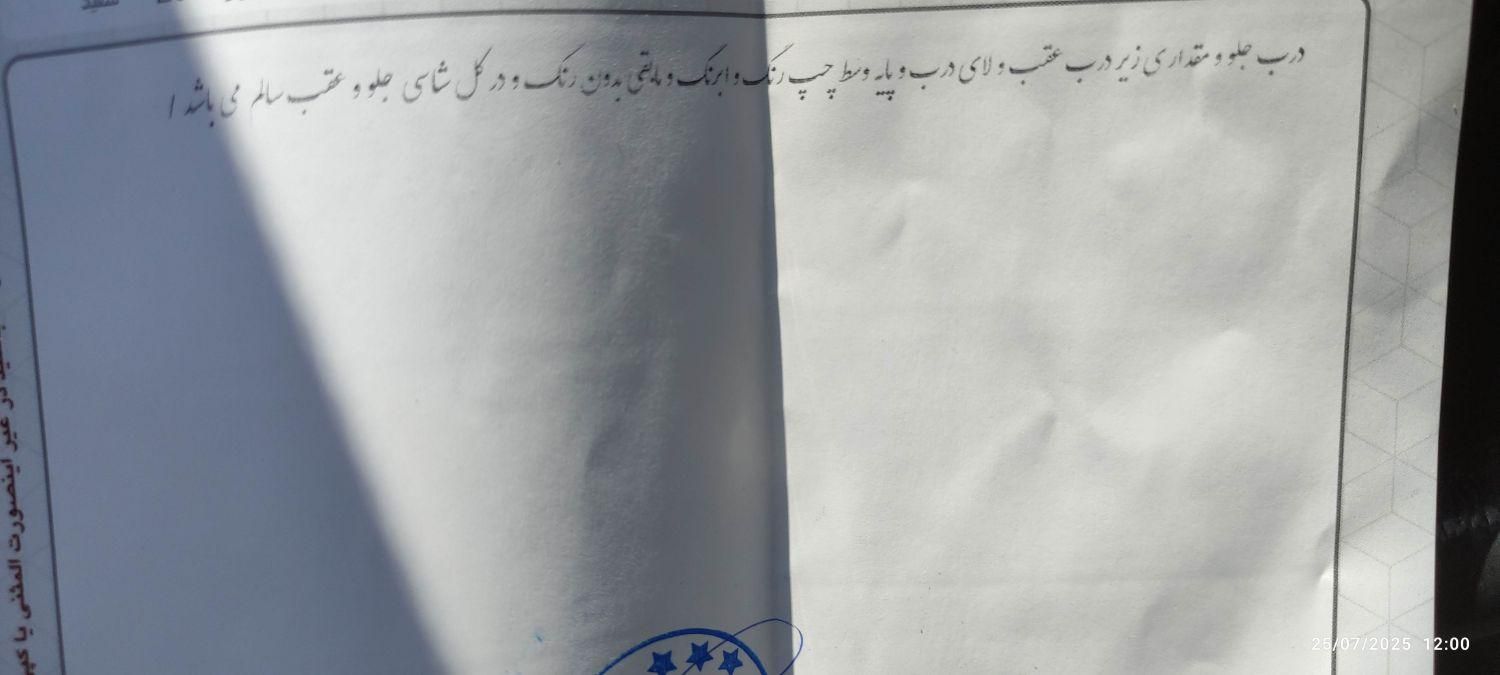 سفید
درب جلو و مقداری زیر درب عقب و لای درب و پایه وسط چپ رنگ و ابرنگ و مابقی بدون رنگ و در کل شاسی جلو و عقب سالم می باشد /
در غیر اینصورت المثنی یا
25/07/2025 12:00